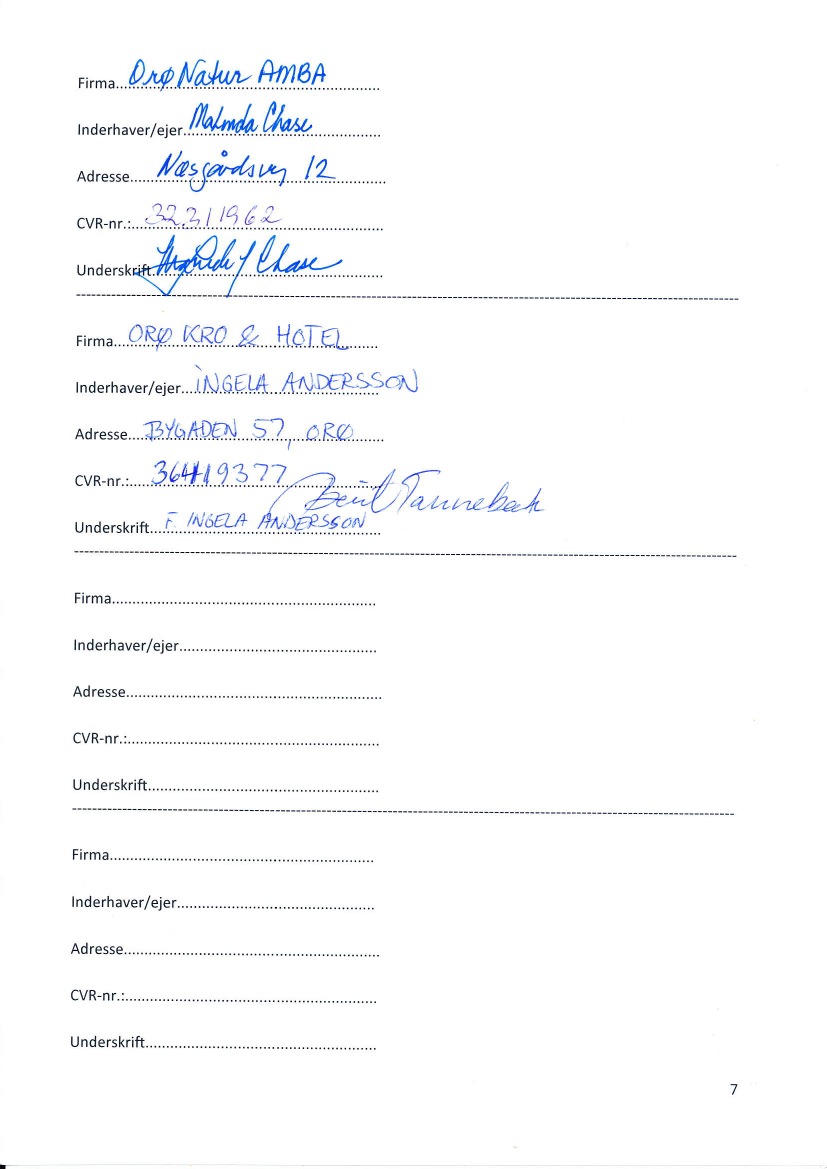 Firma Orø Natur AMBA
Inderhaver/ejer Malinda Chase
Adresse Næsgårdsvej 12
CVR-nr.: 32311962
Underskrift Chase
Firma ORØ KRO & HOTEL
Inderhaver/ejer INGELA ANDERSSON
Adresse BYGADEN 57, ORØ
CVR-nr.: 36419377
Underskrift F. INGELA ANDERSSON
Firma
Inderhaver/ejer
Adresse
CVR-nr.:
Underskrift
Firma
Inderhaver/ejer
Adresse
CVR-nr.:
Underskrift
7